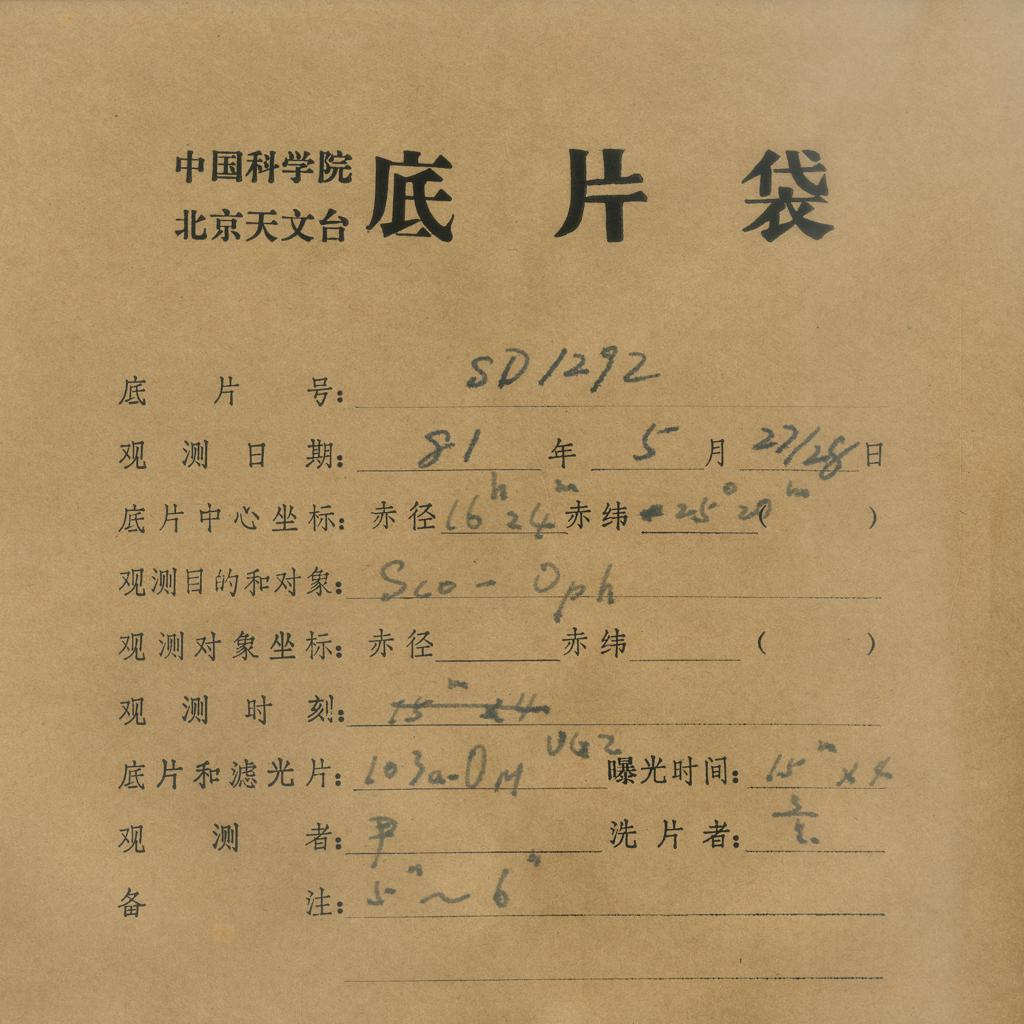 中国科学院
北京天文台
底片袋
底片号: SD1292
观测日期: 81年5月27/28日
底片中心坐标: 赤径16h24m赤纬-25°20m( )
观测目的和对象: Sco - Oph
观测对象坐标: 赤径 赤纬 ( )
观测时刻: 15m x4
底片和滤光片: 103a-O UG2 曝光时间: 15m x4
观测者: 尹 洗片者:
备注: 5" ~ 6"